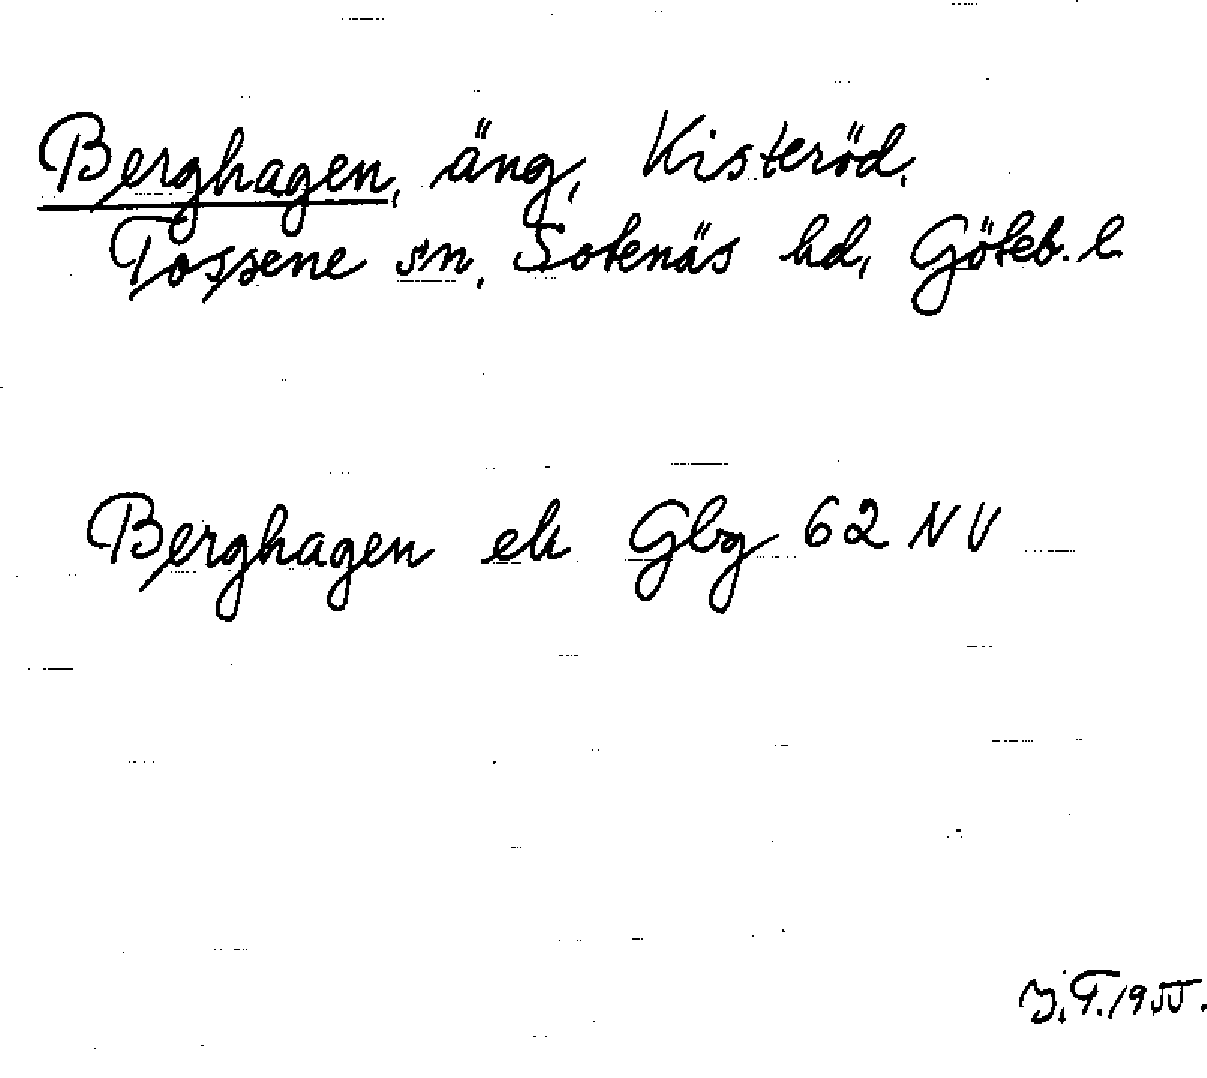 Berghagen, äng, Kisteröd,
Tossene sn, Sotenäs hd, Göteb. l
Berghagen ek Gbg 62 NV
J.T. 1955.